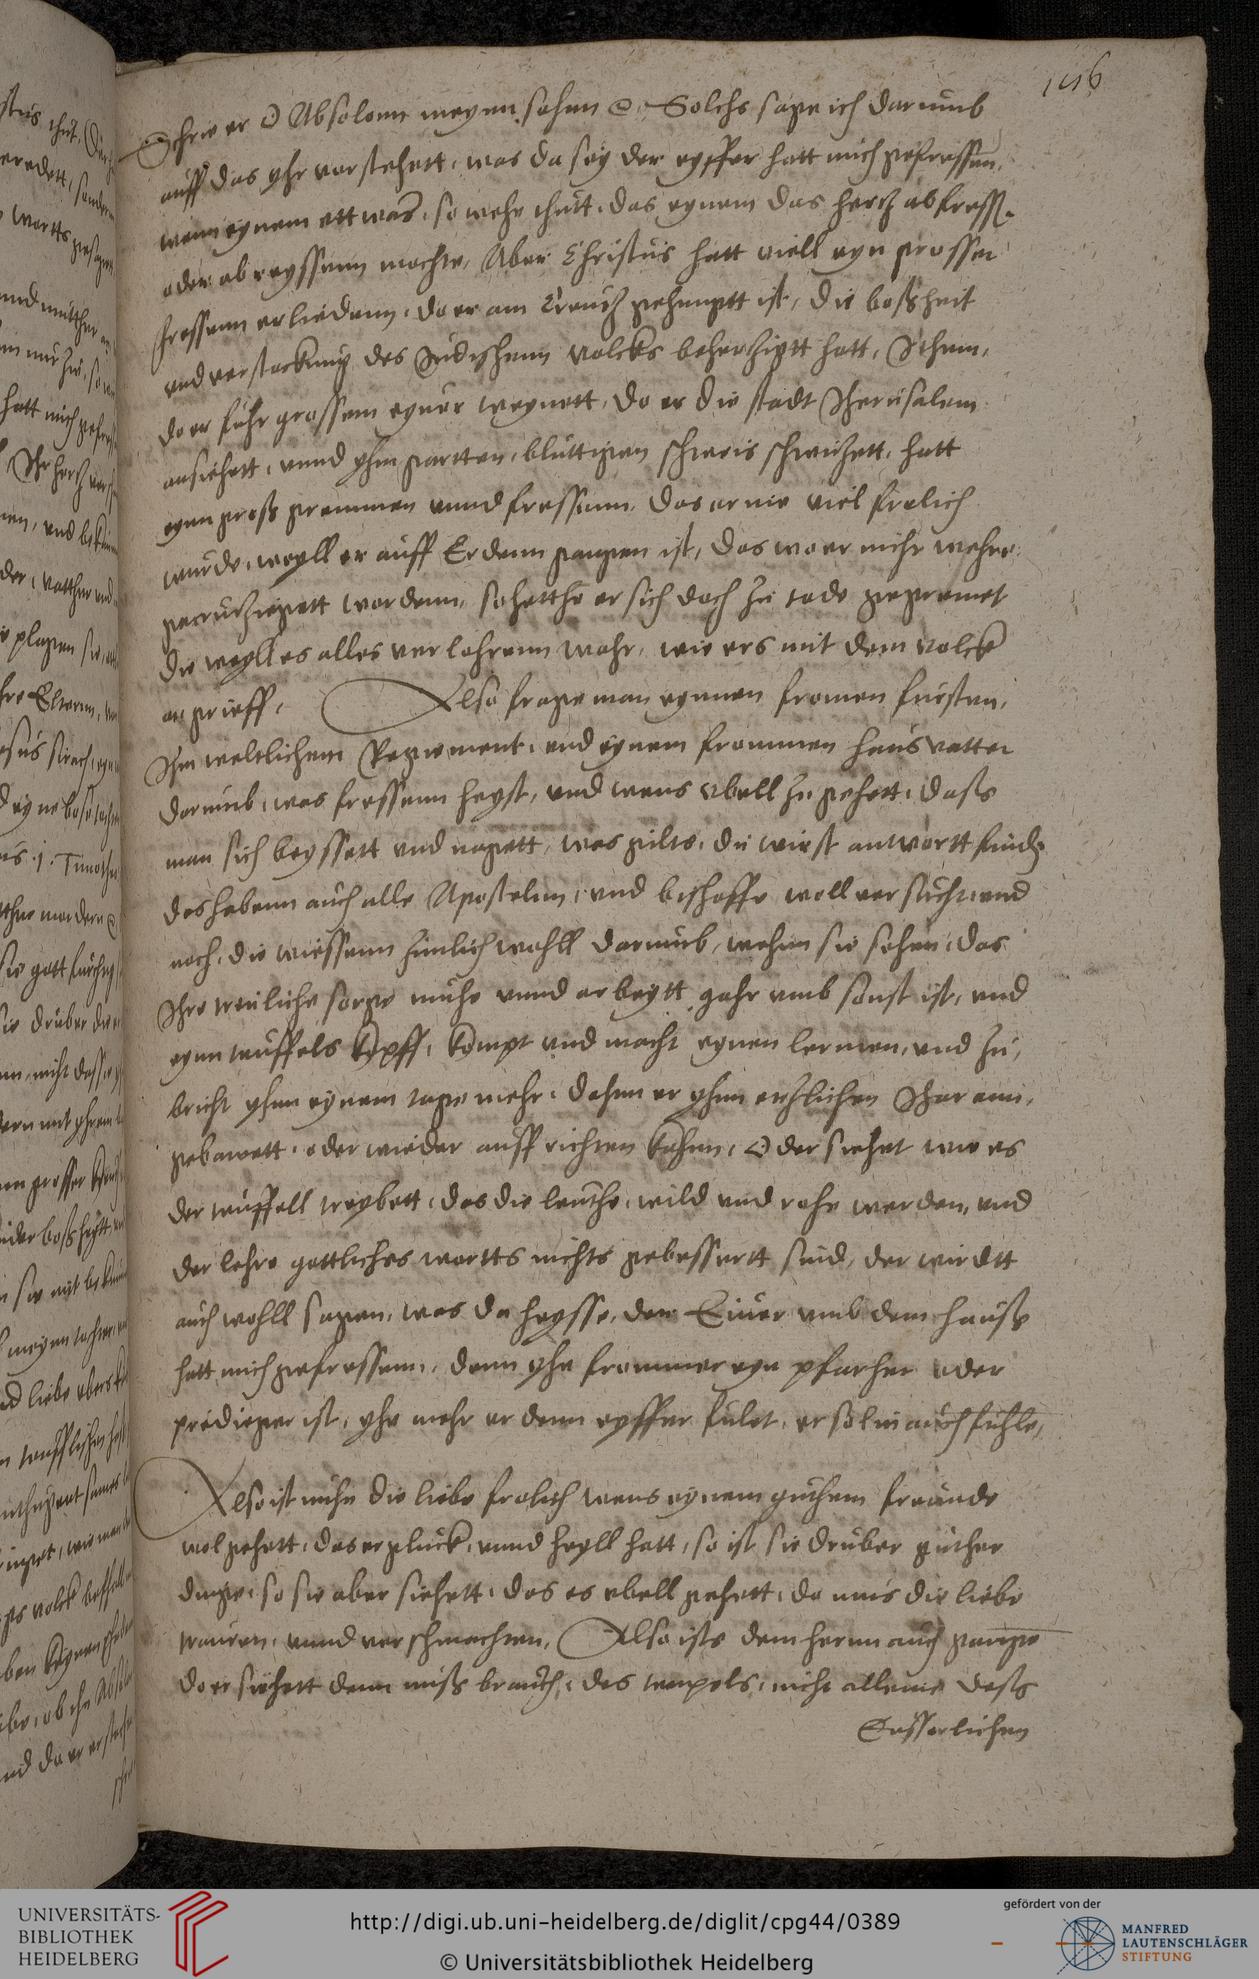 146
Schrie er O Absolom meyn sohn etc. Solchs sage ich darumb
auff das yhr vorstehett, was da sey der eyffer hatt mich gefressen,
wenn eynem ettwas, so wehe thutt, das eynem das hertz abfress.
oder abreyssenn mochte, Aber Christus hatt viell eyn grosser
fressenn erliedenn, do er am Creutz gehengtt ist, die bossheit
vnd verstockung des Judischenn volcks behertzigtt hatt, Ithem,
do er fuhr grossem eyuer weynett, do er die stadt Iherusalem
ansiehett, vnnd yhm gartten, bluttigen schweis schwitzett, hatt
eyn gross gremmen vnnd fressenn, das er nie viel frolich
wurde, weyll er auff Erdenn gangen ist, das wo er nihr wehre
gecrutzigett wordenn, so hette er sich doch zu tode gegremet
die weyll es alles verlohrenn wahr, wie ers mit dem volck
angrieff, Also frage man eynnen fromen fursten,
Ihn weltlichem Regiement, vnd eynem frommen hausvatter
darumb, was fressenn heyst, vnd wens vbell zu gehett, dass
man sich beyssett vnd nagett, was gilts, du wirst antwortt find.
des habenn auch alle Apostelnn, vnd bischoffe woll versucht, vnd
noch, die wiessenn zimlich wohll darumb, wehnn sie sehen, das
Ihre treuliche sorge muhe vnnd arbeytt gahr vmb sonst ist, vnd
eynn teuffels kopff, kompt vnd macht eynen lermen, vnd zu,
bricht yhnn eynem tage mehr, dehnn er yhnn etzlichen Iharenn,
gebawett, oder wieder auffrichten kahnn, Oder siehet wie es
der teuffell treybett, das die leuthe, wild vnd rohe werden, vnd
der lehre gottliches wortts nichts gebessertt sind, der wirdtt
auch wohll sagen, was da heysse, der Eiuer vmb dein hauss
hatt mich gefressenn, denn yhe frommer eyn pfarher oder
prediger ist, yhe mehr er denn eyffer fulet, er sol in auch fuhle,
Also ist nuhn die liebe frolich wens eynem guthem freunde
wol gehett, das er gluck, vnnd heyll hatt, so ist sie druber guther
dinge, so sie aber siehett, das es vbell gehett, do mus die liebe
trauren, vnnd verschmachten, Also ists dem hernn auch gange
do er siehett denn miss brauch, des tempels, nicht alleine dess
Eusserlichen
UNIVERSITÄTS-
BIBLIOTHEK
HEIDELBERG
http://digi.ub.uni-heidelberg.de/diglit/cpg44/0389
© Universitätsbibliothek Heidelberg
gefördert von der
MANFRED
LAUTENSCHLÄGER
STIFTUNG